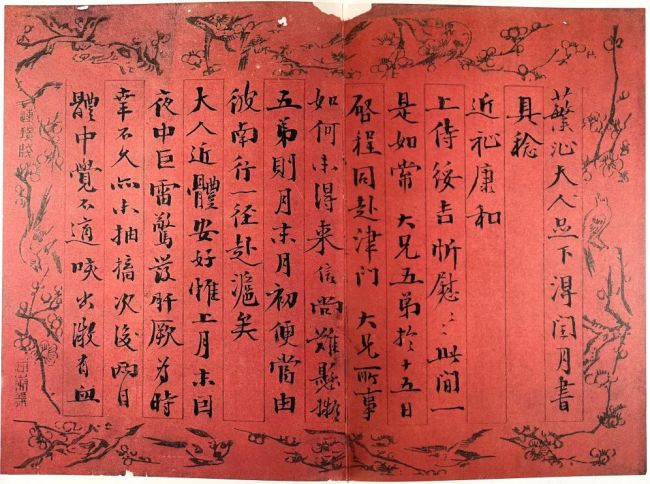 藼沁夫人足下得閏月書
具稔
近祉康和
上侍綏吉忻慰〻此間一
是如常 大兄五弟於十五日
啓程同赴津門 大兄所事
如何未得來信尚難懸擬
五弟則月末月初便當由
彼南行一徑赴滬矣
大人近體安好惟上月末因
夜中巨雷驚發肝厥為時
幸不久亦未抽搐次後兩日
體中覺不適咳出澂有血